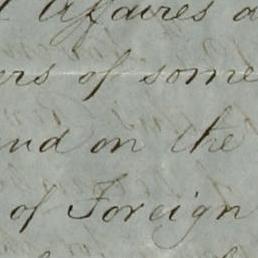 Affaires a
ers of some
and on the
of Foreign